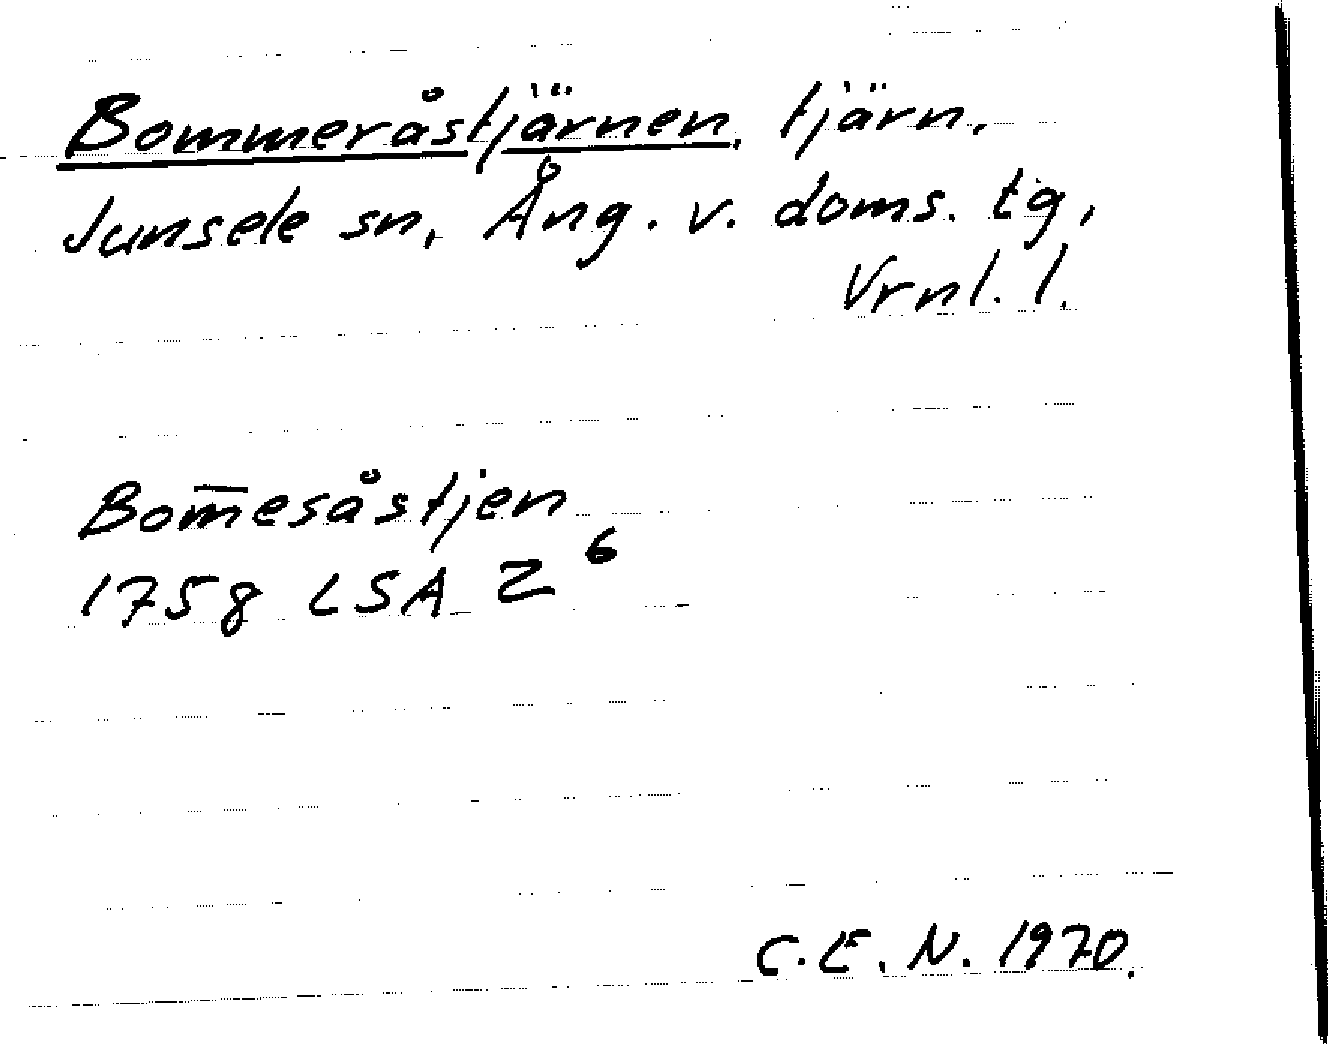 Bommeråstjärnen, tjärn,
Junsele sn, Ång. v. doms. tg,
Vrnl. l.
Bom̅esåstjen
1758 LSA Z⁶
C.E.N. 1970.